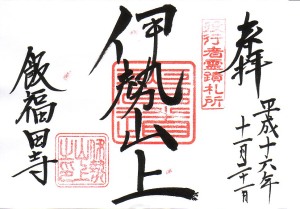 役行者霊蹟札所
奉拝
平成十六年
十一月二十一日
伊勢山上
飯福田寺